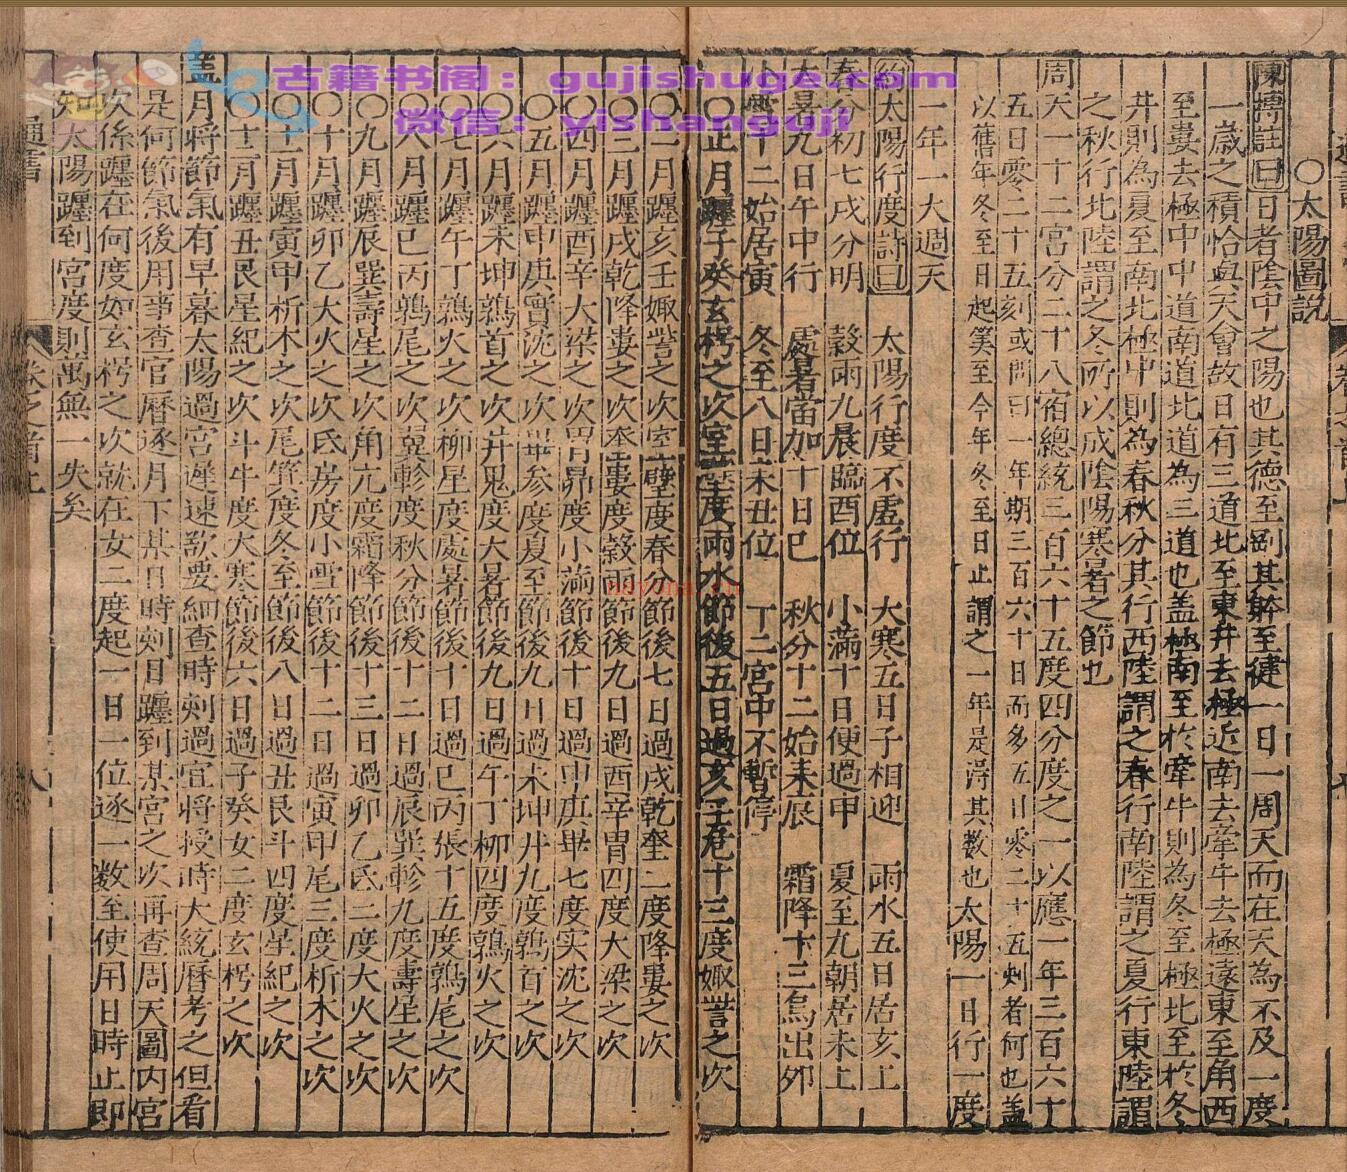 古籍书阁：gujishuge.com
微信：yishanguji
○太陽圖說
陳摶註曰日者陰中之陽也其德至剛其幹至健一日一周天而在天為不及一度
一歲之積恰與天會故日有三道北至東井去極近南去牽牛去極遠東至角西
至婁去極中中道南道北道為三道也蓋極南至於牽牛則為冬至極北至於冬
井則為夏至南北極中則為春秋分其行西陸謂之春行南陸謂之夏行東陸謂
之秋行北陸謂之冬所以成陰陽寒暑之節也
周天一十二宮分二十八宿總統三百六十五度四分度之一以應一年三百六十
五日零二十五刻或問曰一年期三百六十日而多五日零二十五刻者何也蓋
以舊年冬至日起筭至今年冬至日止謂之一年是得其數也太陽一日行一度
一年一大週天
約太陽行度詩曰 太陽行度不虛行 大寒五日子相迎 雨水五日居亥上
春分初七戌分明 穀雨九晨臨酉位 小滿十日便過甲 夏至九朝居未上
大暑九日午中行 處暑當加十日巳 秋分十二始来辰 霜降十三烏出夘
小雪十二始居寅 冬至八日未丑位 丁二宮中不暫停
○正月躔子癸玄枵之次室壁度雨水節後五日過亥壬危十三度娵訾之次
○二月躔亥壬娵訾之次室壁度春分節後七日過戌乾奎二度降婁之次
○三月躔戌乾降婁之次奎婁度穀雨節後九日過酉辛胃四度大梁之次
○四月躔酉辛大梁之次胃昴度小滿節後十日過申庚畢七度实沈之次
○五月躔申庚實沈之次畢参度夏至節後九日過未坤井九度鶉首之次
○六月躔未坤鶉首之次井鬼度大暑節後九日過午丁柳四度鶉火之次
○七月躔午丁鶉火之次柳星度處暑節後十日過巳丙張十五度鶉尾之次
○八月躔巳丙鶉尾之次翼軫度秋分節後十二日過辰巽軫九度壽星之次
○九月躔辰巽壽星之次角亢度霜降節後十三日過卯乙氐二度大火之次
○十月躔卯乙大火之次氐房度小雪節後十二日過寅甲尾三度析木之次
○十一月躔寅甲析木之次尾箕度冬至節後八日過丑艮斗四度星紀之次
○十二月躔丑艮星紀之次斗牛度大寒節後六日過子癸女二度玄枵之次
盖月將節氣有早暮太陽過宮遲速欲要細查時刻過宜將授時大統曆考之但看
是何節氣後用事查官曆逐月下某日時刻日躔到某宮之次再查周天圖内宮
次係躔在何度如玄枵之次就在女二度起一日一位逐一数至使用日時止即
知太陽躔到宮度則萬無一失矣
通書
八